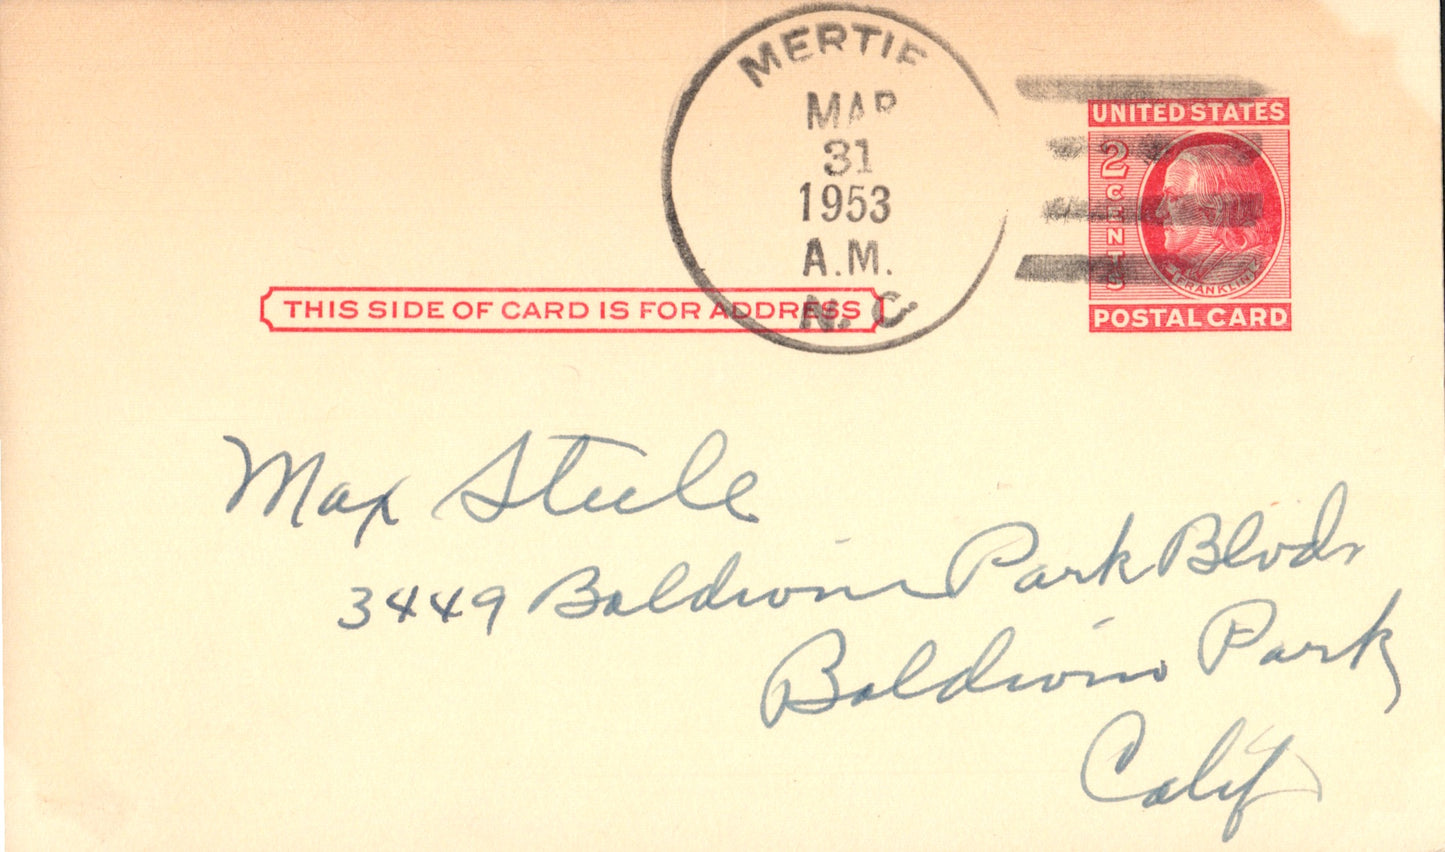 MERTIE
MAR
31
1953
A.M.
N. C.
UNITED STATES
2 CENTS
FRANKLIN
POSTAL CARD
THIS SIDE OF CARD IS FOR ADDRESS
Max Steele
3449 Baldwin Park Blvd.
Baldwin Park,
Calif